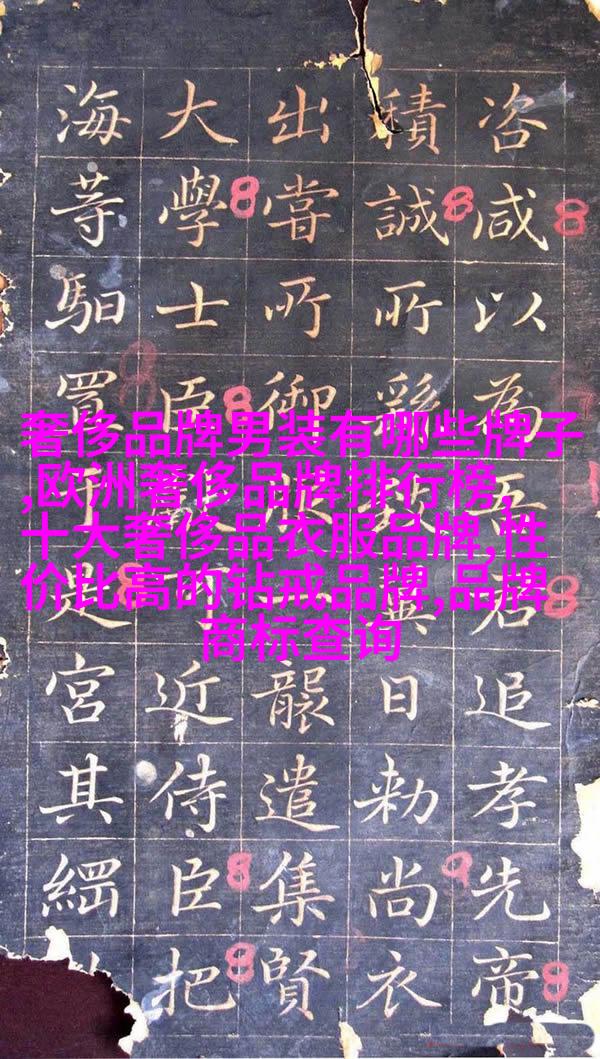 咨咸以為吾君追孝先帝
積誠所致異日勑尚衣
出嘗所御服一襲遣集賢
大學士臣近侍臣把
海等馹置于是宮其
奢侈品牌男装有哪些牌子
,欧洲奢侈品牌排行榜,
十大奢侈品衣服品牌,性
价比高的钻戒品牌,品牌
商标查询